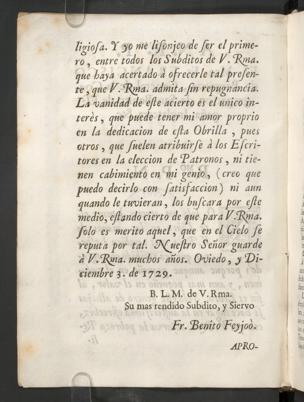 ligiosa. Y yo me lisonjeo de ser el prime-
ro, entre todos los Subditos de V. Rma.
que haya acertado à ofrecerle tal presen-
te, que V. Rma. admita sin repugnancia.
La vanidad de este acierto es el unico in-
terès, que puede tener mi amor proprio
en la dedicacion de esta Obrilla, pues
otros, que suelen atribuirse à los Escri-
tores en la eleccion de Patronos, ni tie-
nen cabimiento en mi genio, (creo que
puedo decirlo con satisfaccion) ni aun
quando le tuvieran, los buscara por este
medio, estando cierto de que para V. Rma.
solo es merito aquel, que en el Cielo se
reputa por tal. Nuestro Señor guarde
à V. Rma. muchos años. Oviedo, y Di-
ciembre 3. de 1729.
B. L. M. de V. Rma.
Su mas rendido Subdito, y Siervo
Fr. Benito Feyjoò.
APRO-